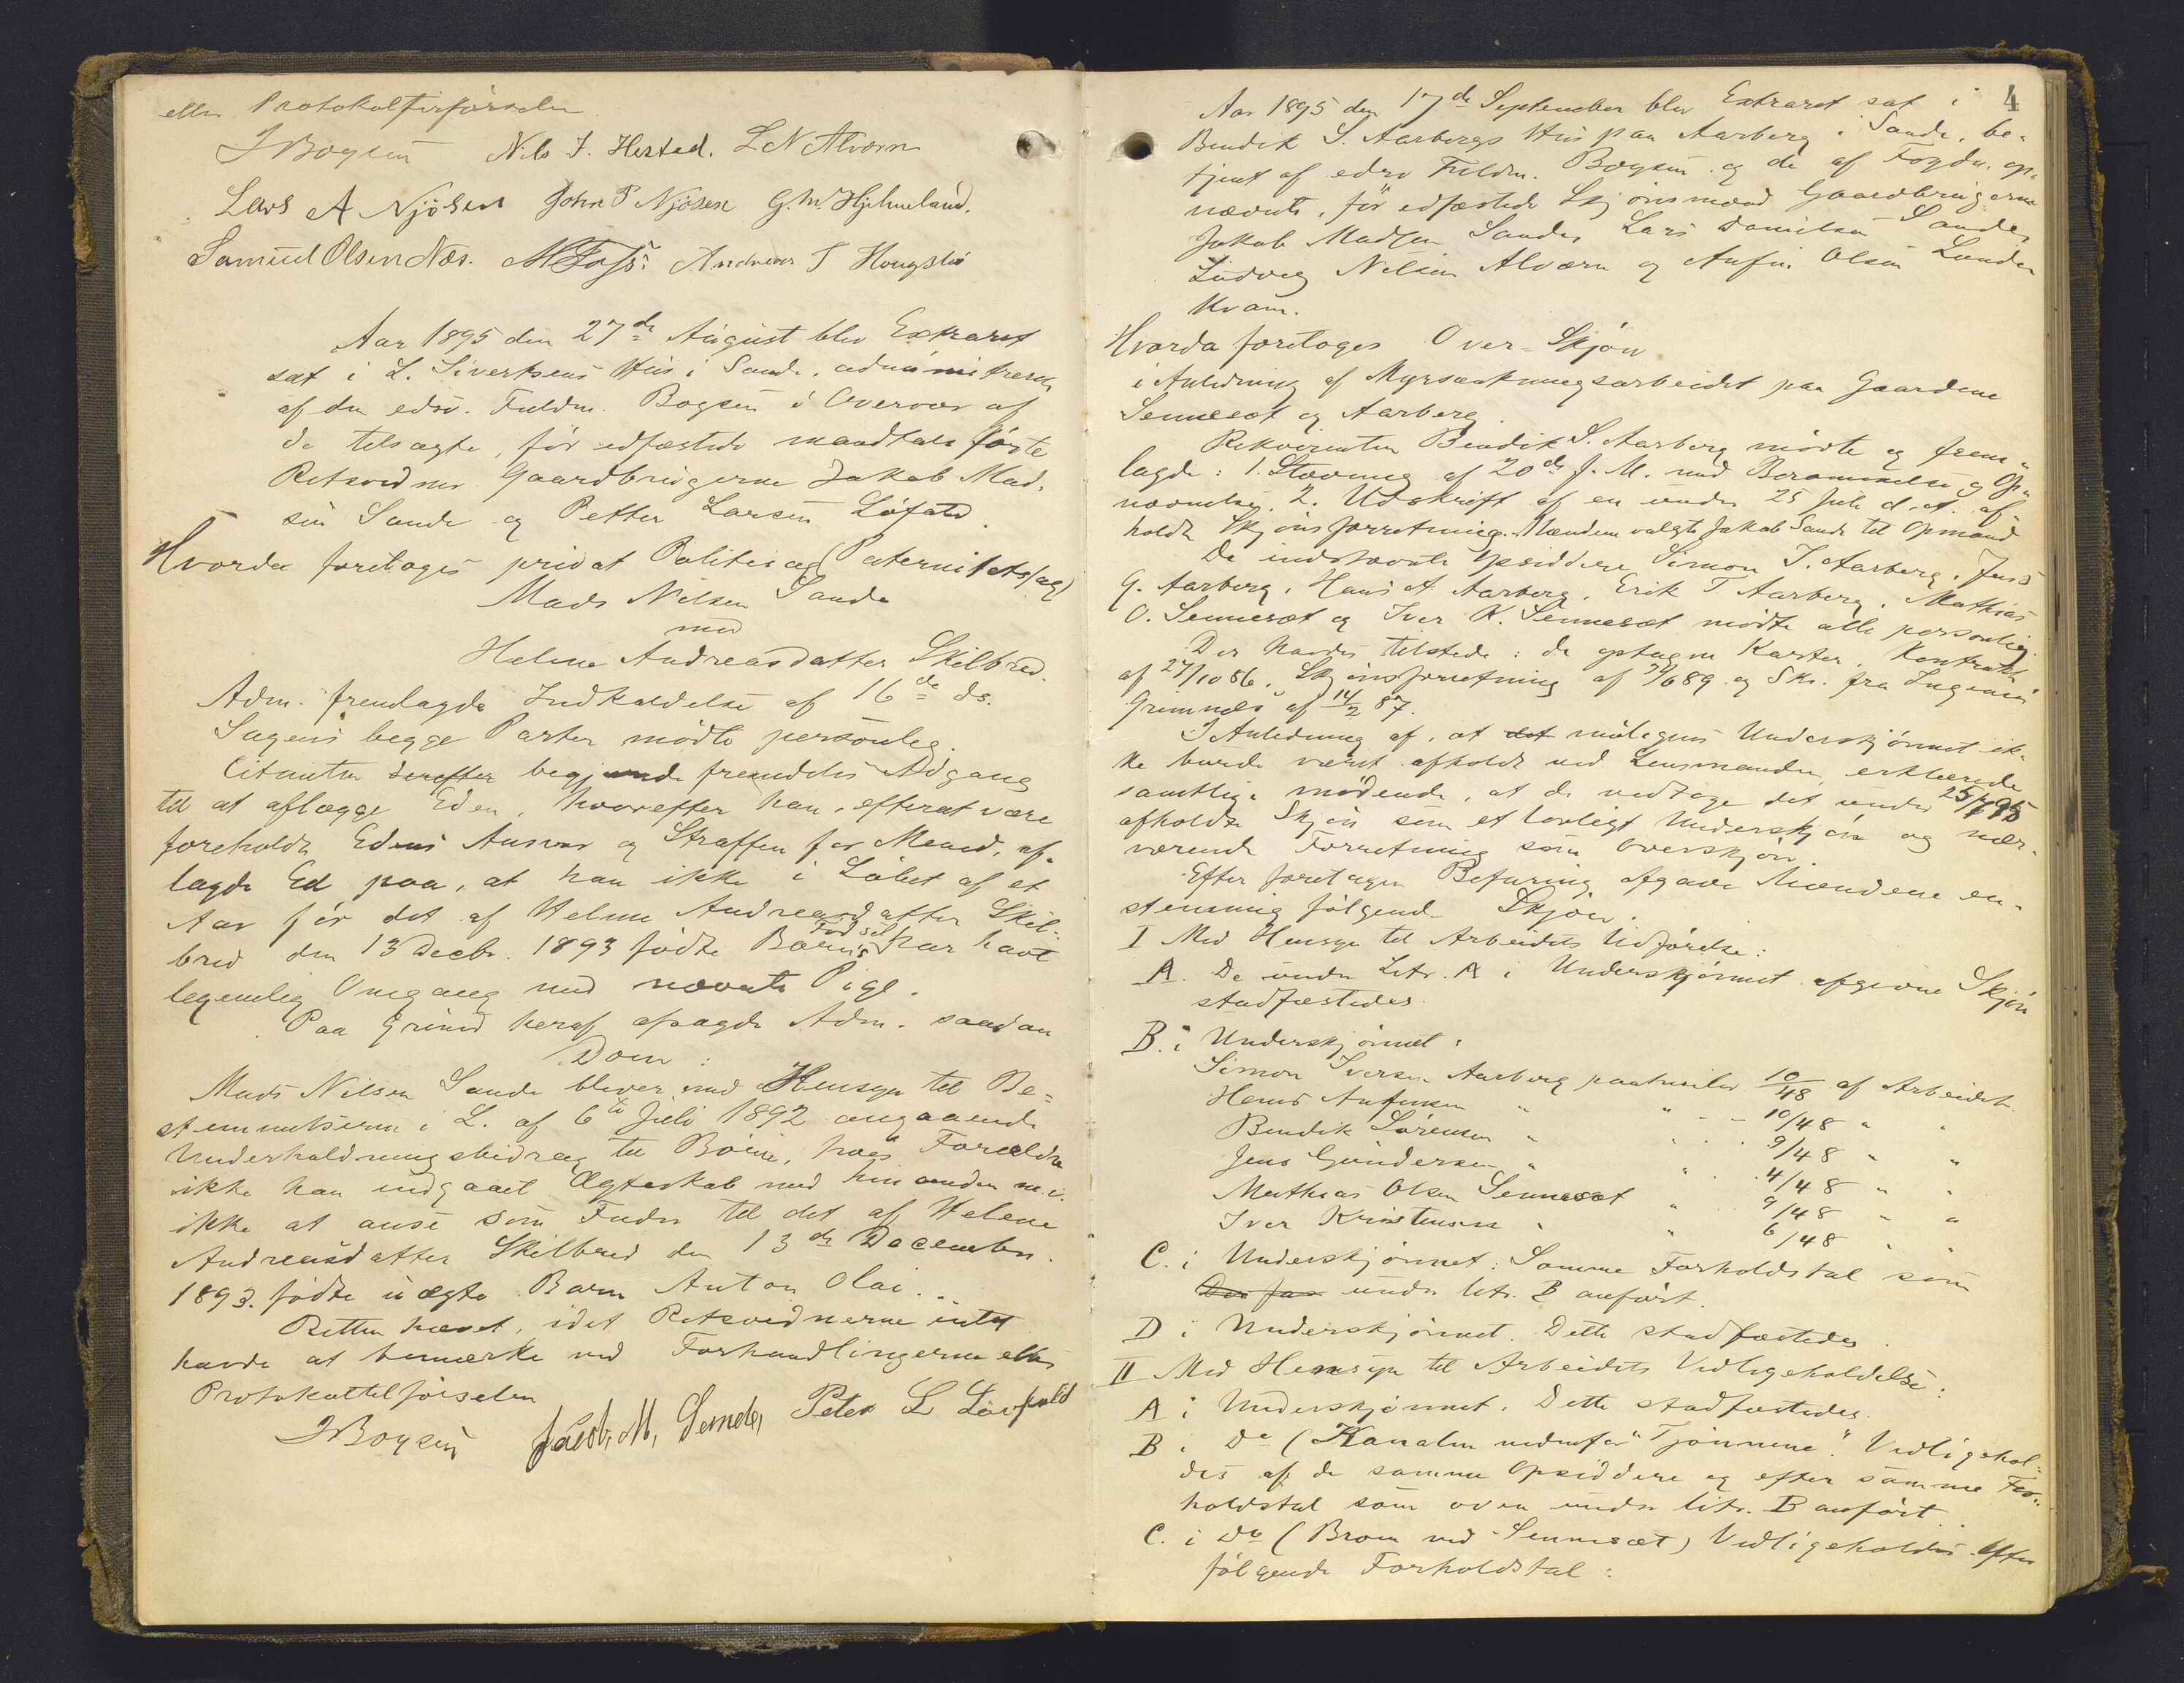 eller Protokoltilførselen.
JBoysen Nils J. Hestad. L N Alværn
Lars A Njøsen John P Njøsen G. M. Hjelmeland.
Samuel Olsen Nes. MFoss. Andreas T Hougsbø
Aar 1895 den 27de August blev Extraret
sat i L. Siverksens Hus i Sande, administreret
af den edsv. Fuldm. Boysen i Overvær af
de tilsagte, før edfæstede mandtals førte
Retsvidner Gaardbrugerne Jakob Mad-
sen Sande og Petter Larsen Løfald.
Hvorda foretoges privat Politisag (Paternitetssag)
Mads Nilsen Sande
mod
Helene Andreasdatter Skilbred.
Adm. fremlagde Indkaldelse af 16de ds.
Sagens begge Parter mødte personlig.
Citanten derefter begjærede fremdeles Adgang
til at aflægge Eden, hvorefter han, efterat være
foreholdt Edens Ansvar og Straffen for Mened, af-
lagde Ed paa, at han ikke i Løbet af et
Aar før det af Helene Andreasdatter Skil-
bred den 13 Decbr. 1893 fødte Barns Fødsel har havt
legemlig Omgang med nævnte Pige.
Paa Grund heraf afsagde Adm. saadan
Dom:
Mads Nilsen Sande bliver med Hensyn til Be-
stemmelserne i L. af 6te Juli 1892 angaaende
Underholdningsbidrag til Børn, hvis Forældre
ikke han indgaaet Ægteskab med hinanden m.v.
ikke at anse som Fader til det af Helene
Andreasdatter Skilbred den 13de December
1893. fødte uægte Barn Anton Olai.
Retten hævet, idet Retsvidnerne intet
havde at bemærke ved Forhandlingerne eller
Protokoltilførselen
JBoysen Jacob, M, Sande, Peter L Løvfald
4
Aar 1895 den 17de September blev Extraret sat i
Bendik S. Aarbergs Hus paa Aarberg i Sande, be-
tjent af edsv Fuldm. Boysen og de af Fogden op-
nævnte, før edfæstede Skjønsmænd Gaardbrugerne
Jakob Madsen Sande, Lars Danielsen Sande,
Ludvig Nilsen Alværn og Anfin Olsen Lunde
Kvam.
Hvorda foretoges Over-Skjøn
i Anledning af Myrsænkningsarbeidet paa Gaardene
Sennesæt og Aarberg.
Rekvirenten Bendik S. Aarberg mødte og frem-
lagde: 1. Stævning af 20de f. M. med Berammelse og Op-
nævnelse, 2. Udskrift af en under 25 Juli d. A. af-
holdt Skjønsforretning. Mændene valgte Jakob Sande til Opmand
De indstævnte Opsiddere Simon I. Aarberg, Jens
G. Aarberg, Hans A Aarberg, Erik T Aarberg, Mathias
O. Sennesæt og Iver K. Sennesæt mødte alle personlig.
Der havdes tilstede: de optagne Karter, Kontrakt
af 27/10 86, Skjønsforretning af 22/6 89 og Skr. fra Ingeniør
Grimnæs af 14/2 87.
I Anledning af, at det muligens Underskjønnet ik-
ke burde været afholdt ved Lensmanden, erklærede
samtlige mødende, at de vedtage det under 25/7 95
afholdte Skjøn som et lovligt Underskjøn og nær-
værende Forretning som Overskjøn.
Efter foretagen Befaring afgave Mændene en-
stemmig følgende Skjøn:
I Med Hensyn til Arbeidets Udførelse:
A. De under Litr. A i Underskjønnet afgivne Skjøn
stadfæstedes.
B. i Underskjønnet:
Simon Iversen Aarberg paahviler 10/48 af Arbeidet
Hans Anfinsen " " - 10/48 " "
Bendik Sørensen " " . 9/48 " "
Jens Gundersen " " 4/48 " "
Mathias Olsen Sennesæt " 9/48 " "
Iver Kristensen " " 6/48 " "
C. i Underskjønnet: Samme Forholdstal som
under litr. B anført.
D i Underskjønnet. Dette stadfæstedes.
II Med Hensyn til Arbeidets Vedligeholdelse:
A i Underskjønnet. Dette stadfæstedes.
B i Do (Kanalen nedenfor "Tjønnene". Vedligehol-
des af de samme Opsiddere og efter samme For-
holdstal som oven under litr. B anført.
C. i Do (Broen ved Sennesæt) Vedligeholdes efter
følgende Forholdstal: